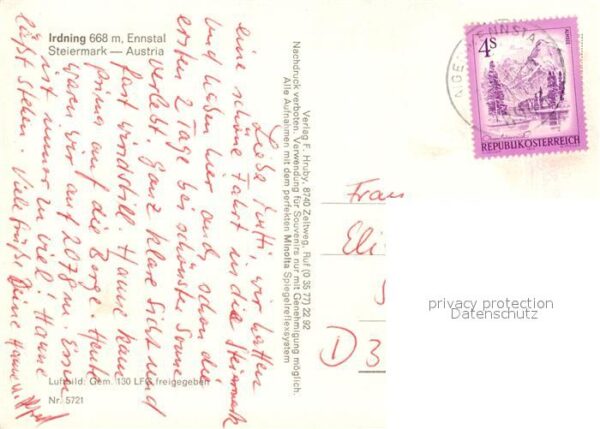 Irdning 668 m, Ennstal
Steiermark — Austria
Liebe Mutti, wir hatten
eine schöne Fahrt in die Steiermark
und haben hier auch schon die
ersten 2 Tage bei schönster Sonne
verlebt. Ganz klare Sicht und
fast windstill. Hanne kam
prima auf die Berge. Heute
waren wir auf 2078 m. Essen
ist immer zu viel! Hanne
läßt stehen. Viele Grüße Deine Hanne u.
Luftbild: Gem. 130 LFG freigegeben
Nr. 5721
Verlag F. Hruby, 8740 Zeltweg, Ruf (0 35 77) 22 92
Nachdruck verboten. Verwendung für Souvenirs nur mit Genehmigung möglich.
Alle Aufnahmen mit dem perfekten Minolta Spiegelreflexsystem
4S
REPUBLIK ÖSTERREICH
ENNSTAL
Frau
Eli
D 3
privacy protection
Datenschutz